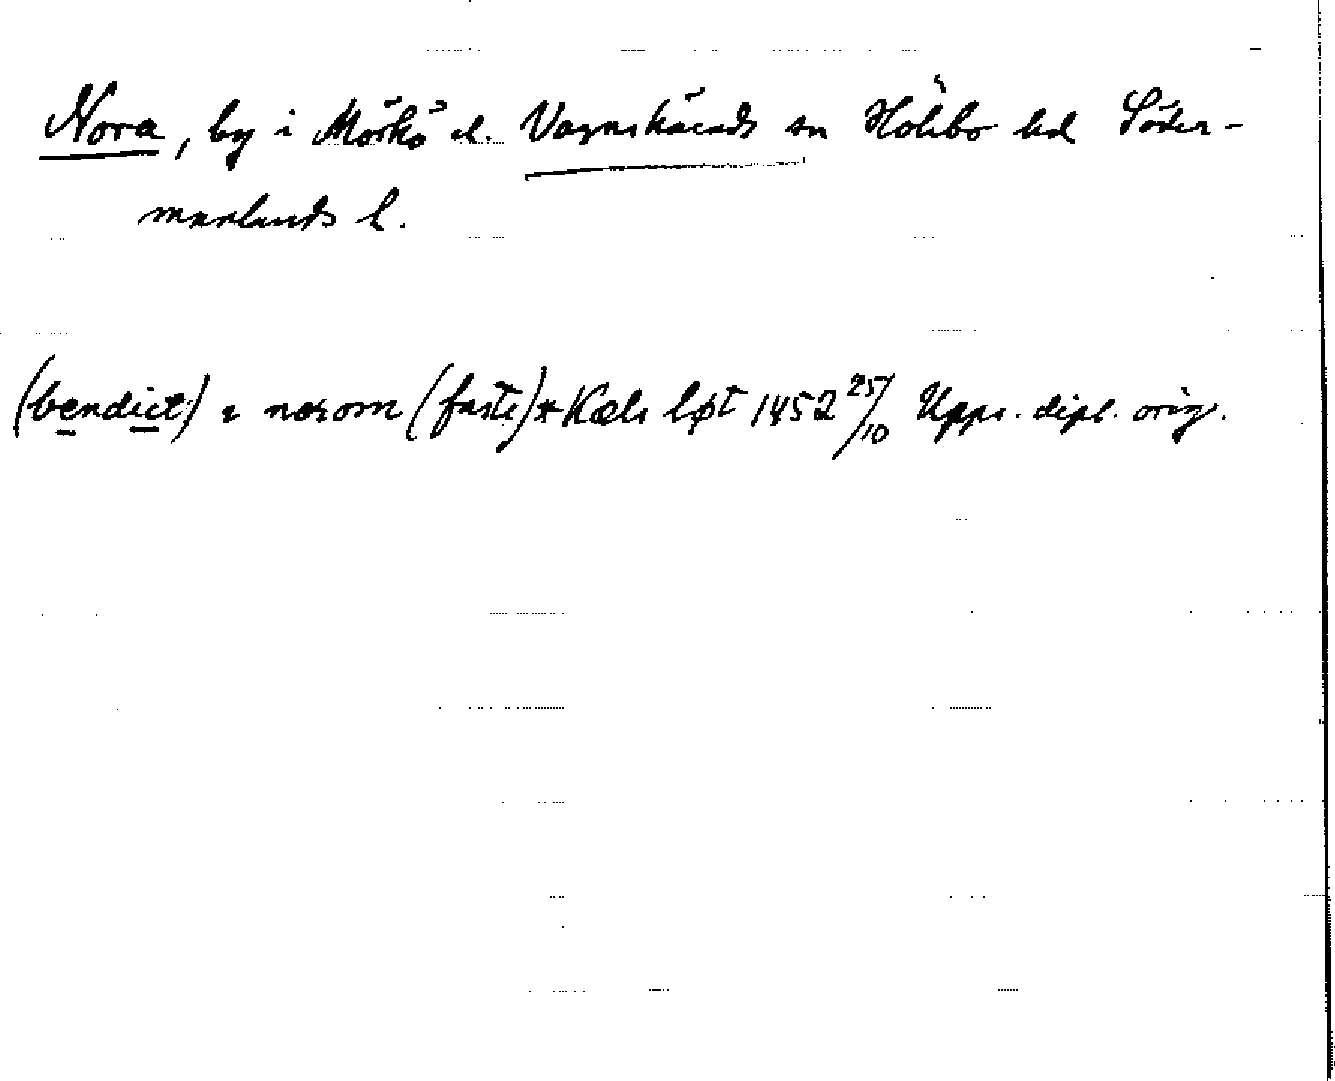 Nora, by i Mörkö el. Vagnhärads sn Hölebo hd Söder-
manlands l.
(bendict) i norom (faste) * Kæls løt 1452 25/10 Upps. dipl. orig.